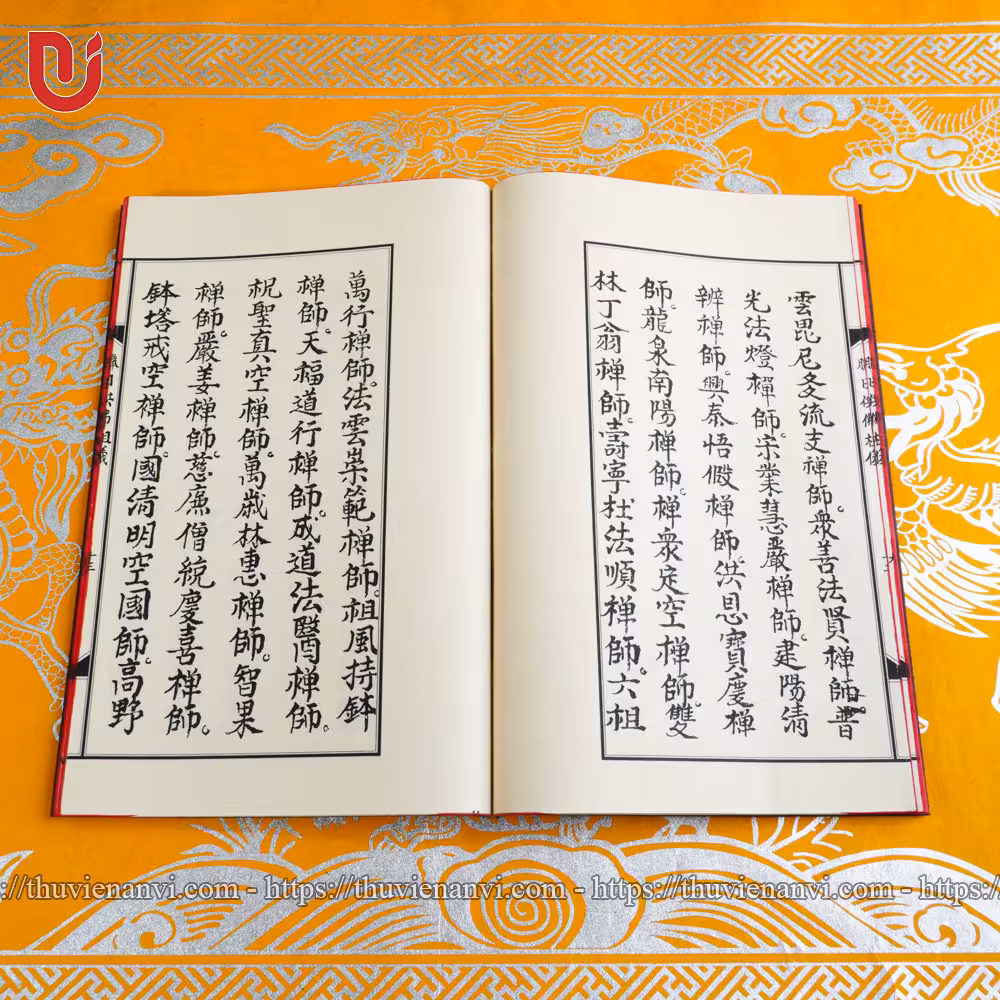 雲毘尼多流支禅師。衆善法賢禅師。普
光法燈禅師。宗業慧嚴禅師。建陽清
辨禅師。興泰悟假禅師。洪恩寶慶禅
師。龍泉南陽禅師。禅衆定空禅師。雙
林丁翁禅師。壽寧杜法順禅師。六祖
萬行禅師。法雲崇範禅師。祖風持鉢
禅師。天福道行禅師。成道法醫禅師。
祝聖真空禅師。萬歲林惠禅師。智果
禅師。嚴姜禅師。慈廉僧統慶喜禅師。
鉢塔戒空禅師。國清明空國師。高野
https://thuvienanvi.com - https://thuvienanvi.com - https://thuvienanvi.com - https://